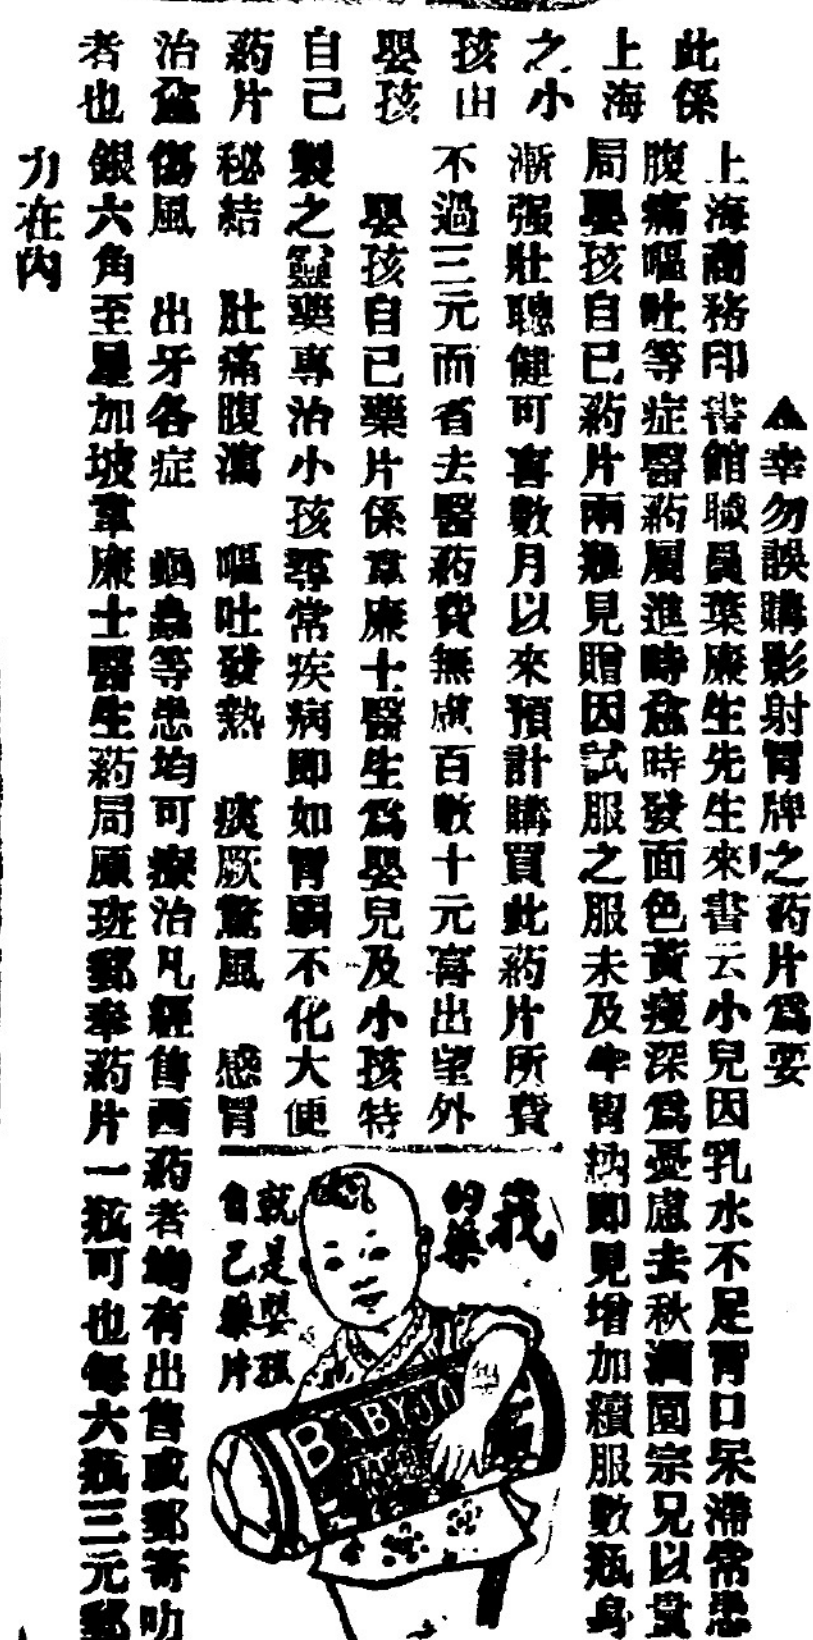 此係
上海
之小
孩由
嬰孩
自己
葯片
治愈
者也
▲幸勿誤購影射冐牌之葯片爲要
上海商務印書館職員葉廉生先生來書云小兒因乳水不足胃口呆滯常患
腹痛嘔吐等症醫葯屢進時愈時發面色黃瘦深爲憂慮去秋瀾園宗兄以貴
局嬰孩自己葯片兩瓶見贈因試服之服未及半胃納卽見增加續服數瓶身
漸强壯聰健可喜數月以來預計購買此葯片所費
不過三元而省去醫葯費無慮百數十元喜出望外
嬰孩自己藥片係韋廉士醫生爲嬰兒及小孩特
製之靈藥專治小孩尋常疾病卽如胃弱不化大便
秘結 肚痛腹瀉 嘔吐發熱 痰厥驚風 感冒
傷風 出牙各症 蛔蟲等患均可療治凡經售西葯者均有出售或郵寄叻
銀六角至星加坡韋廉士醫生葯局原班郵奉葯片一瓶可也每六瓶三元郵
力在內
我
的藥
就是嬰孩
自己藥片
BABY